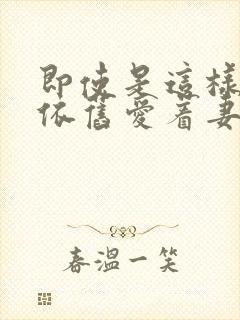 即使是這樣
依舊愛着妻
春溫一笑